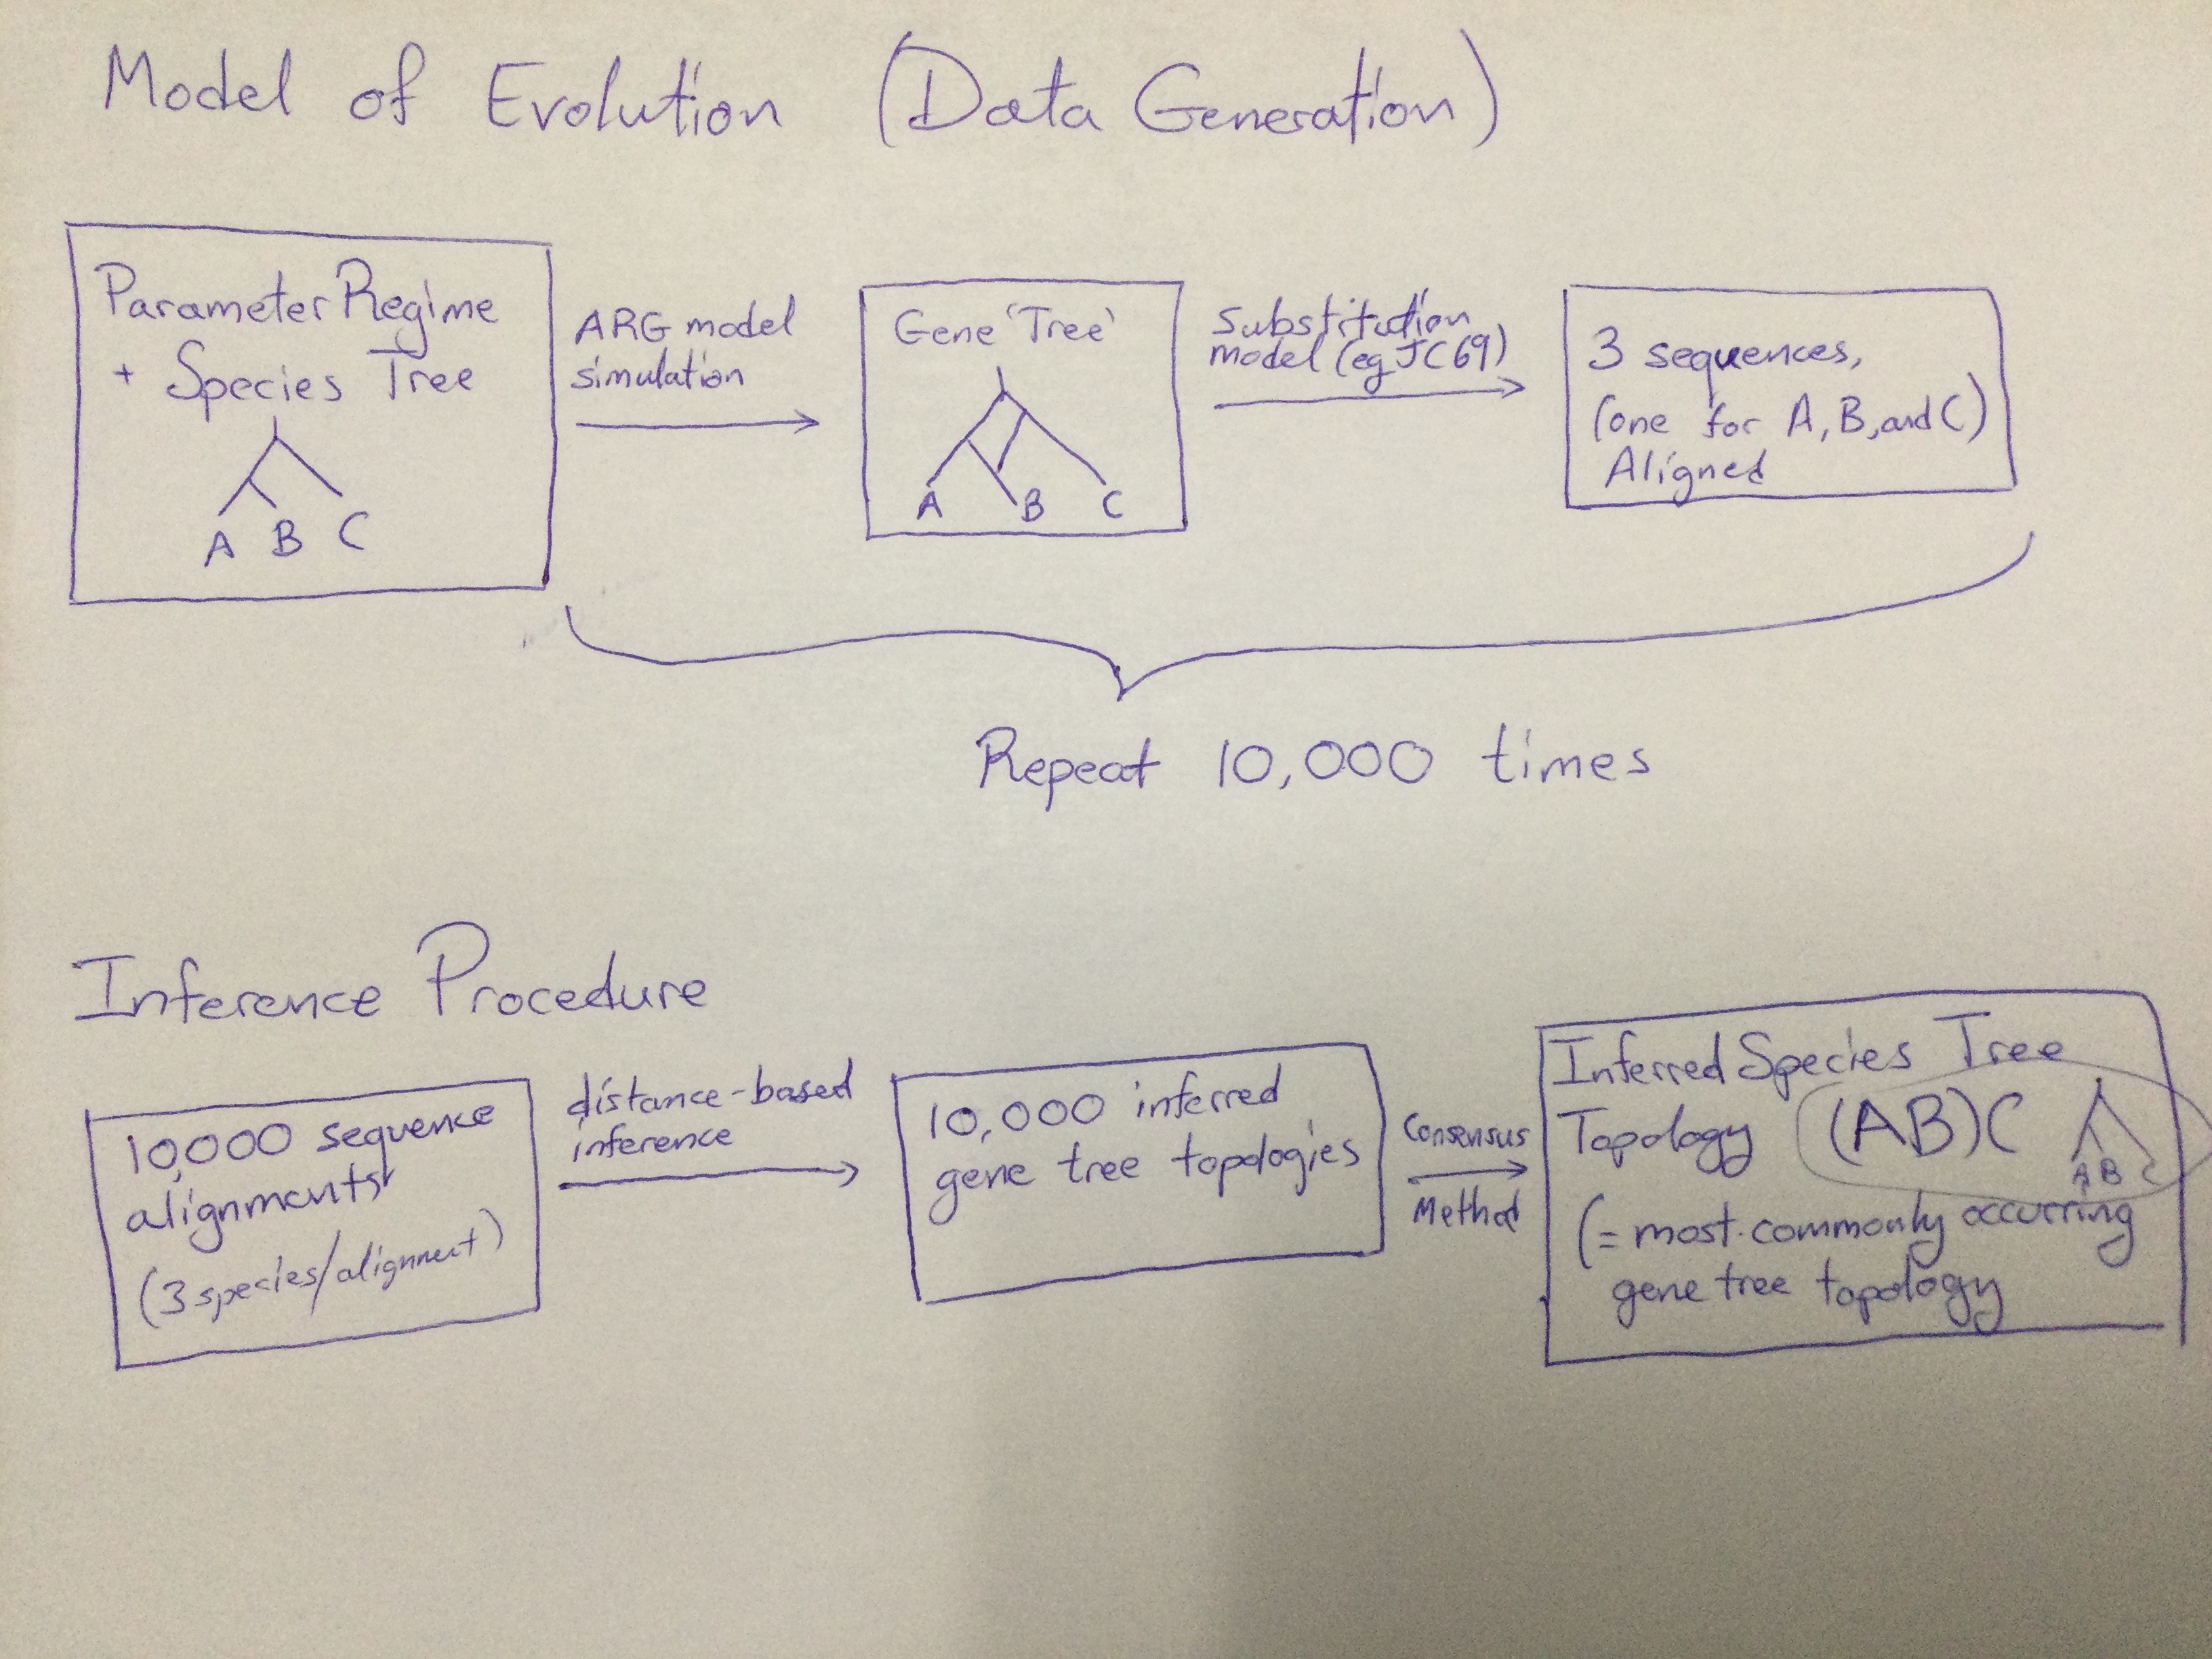 Model of Evolution (Data Generation)
Parameter Regime
+ Species Tree
A B C
ARG model
simulation
Gene 'Tree'
A B C
Substitution
model (eg JC69)
3 sequences,
(one for A, B, and C)
Aligned
Repeat 10,000 times
Inference Procedure
10,000 sequence
alignments
(3 species/alignment)
distance-based
inference
10,000 inferred
gene tree topologies
Consensus
Method
Inferred Species Tree
Topology (AB)C
A B C
(= most commonly occurring
gene tree topology